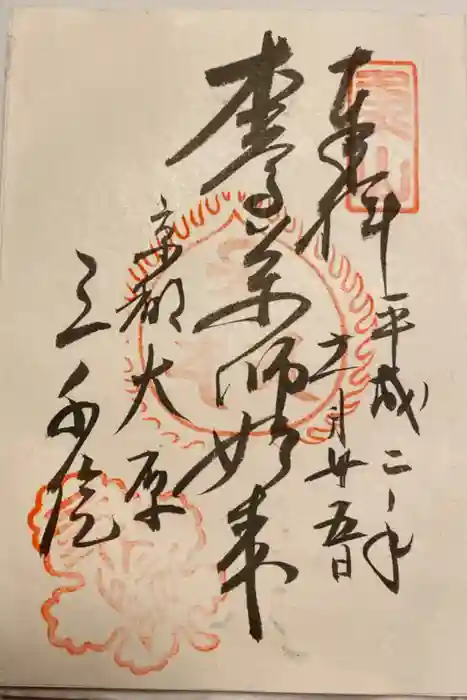 奉拝
平成二十年
十一月廿五日
本尊薬師如来
京都大原
三千院